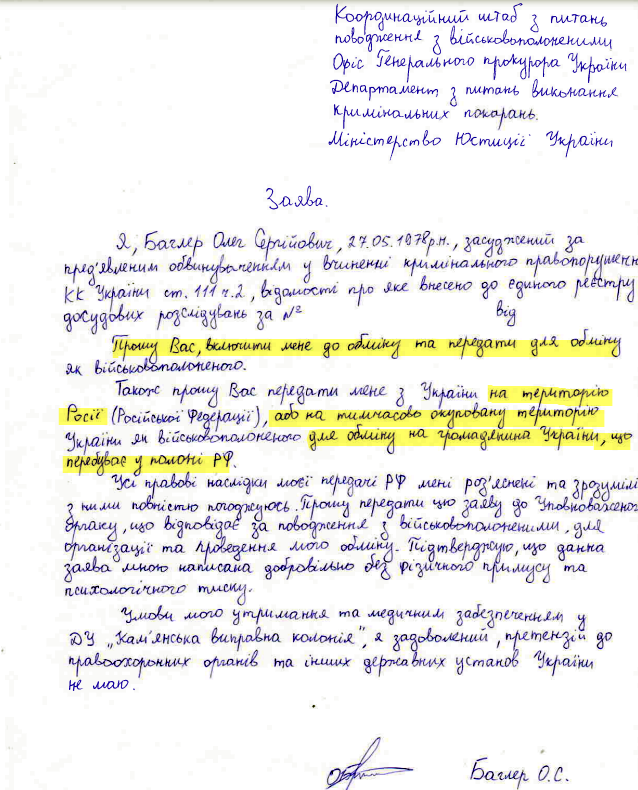 Координаційний штаб з питань
поводження з військовополоненими
Офіс Генерального прокурора України
Департамент з питань виконання
кримінальних покарань.
Міністерство Юстиції України
Заява.
Я, Баглер Олег Сергійович, 27.05.1978р.н., засуджений за
пред'явленим обвинуваченням у вчиненні кримінального правопорушенн
КК України ст. 111 ч.2, відомості про яке внесено до единого реєстру
досудових розслідувань за № від
Прошу Вас, включити мене до обміну та передати для обміну
як військовополоненого.
Також прошу Вас передати мене з України на територію
Росії (Російської Федерації), або на тимчасово окуповану територію
України як військовополоненого для обміну на громадянина України, що
перебуває у полоні РФ.
Усі правові наслідки моєї передачі РФ мені роз'яснені та зрозумілі
з ними повністю погоджуюсь. Прошу передати цю заяву до Уповноваженого
органу, що відповідає за поводження з військовополоненими, для
організації та проведення мого обміну. Підтверджую, що данна
заява мною написана добровільно без фізичного примусу та
психологічного тиску.
Умови мого утримання та медичним забезпеченням у
ДУ „Кам'янська виправна колонія", я задоволений, претензій до
правоохоронних органів та інших державних установ України
не маю.
Баглер О.С.